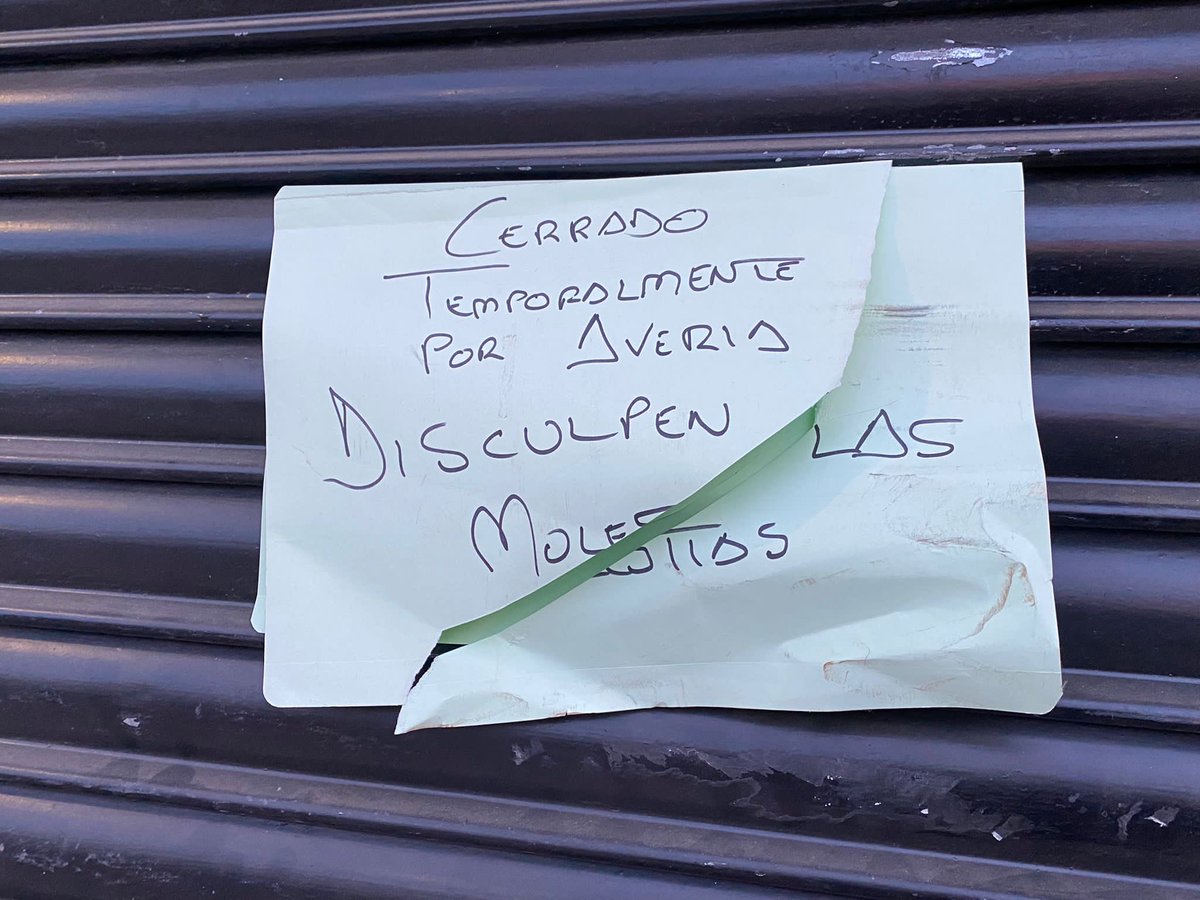 CERRADO
TEMPORALMENTE
POR AVERIA
DISCULPEN LAS
MOLESTIAS